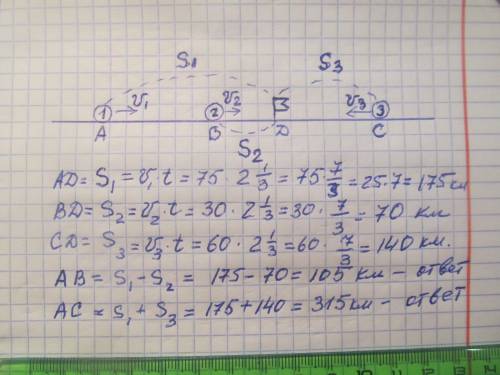 S₁ S₃
1 v₁ 2 v₂ v₃ 3
A B D C
S₂
AD = S₁ = v₁t = 75 · 2 1/3 = 75 · 7/3 = 25 · 7 = 175 км
BD = S₂ = v₂ · t = 30 · 2 1/3 = 30 · 7/3 = 70 км
CD = S₃ = v₃ · t = 60 · 2 1/3 = 60 · 7/3 = 140 км.
AB = S₁ - S₂ = 175 - 70 = 105 км - ответ
AC = S₁ + S₃ = 175 + 140 = 315 км - ответ